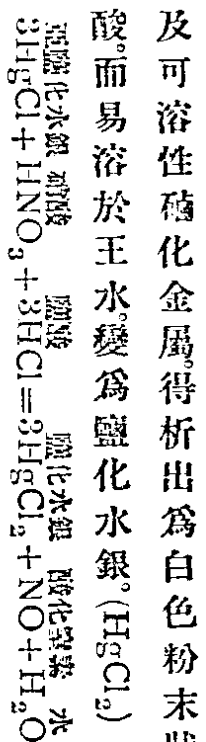 及可溶性磠化金屬。得析出爲白色粉末
酸。而易溶於王水。變爲鹽化水銀。(HgCl₂)
亞鹽化水銀 硝酸 鹽酸 鹽化水銀 酸化窒素 水
3HgCl+HNO₃+3HCl=3HgCl₂+NO+H₂O